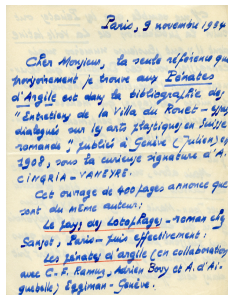 Paris, 9 novembre 1984
Cher Monsieur, la seule référence que
moyennement je trouve aux Pénates
d'Argile est dans la bibliographie des
"Entretiens de la Villa du Rouet -
dialogués sur les arts plastiques en Suisse
romande" publié à Genève (Jullien) en
1908, sous la curieuse signature d'A.
CINGRIA-VANEYRE.
Cet ouvrage de 400 pages annonce que
sont du même auteur:
Le pays des Lotophages - roman chez
Sansot, Paris - puis effectivement:
Les pénates d'argile (en collaboration
avec C.-F. Ramuz, Adrien Bovy et A. d'Ai-
guebelle) Eggiman - Genève.